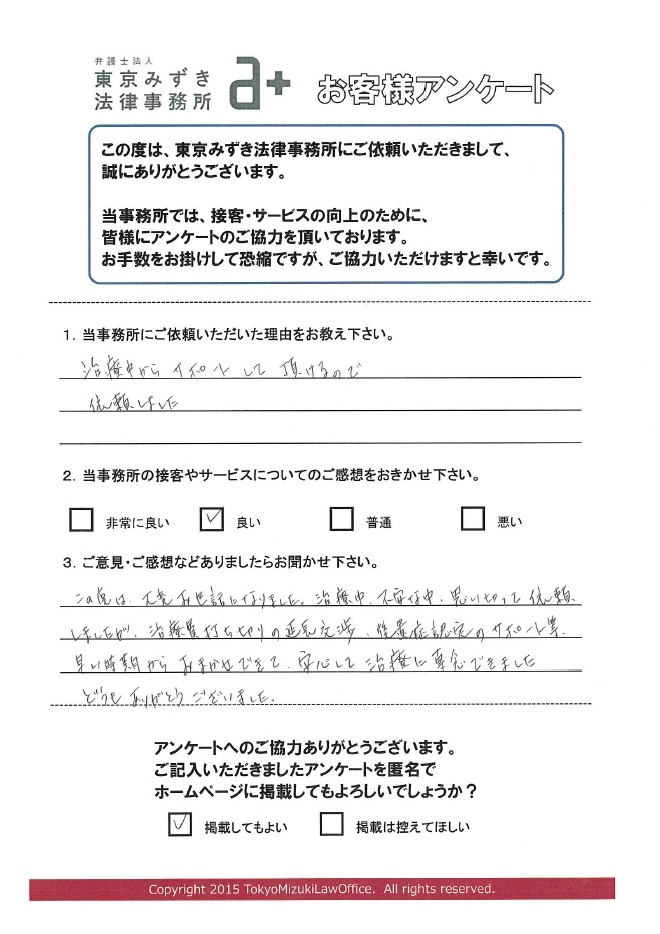 弁護士法人
東京みずき
法律事務所
a+
お客様アンケート
この度は、東京みずき法律事務所にご依頼いただきまして、
誠にありがとうございます。
当事務所では、接客・サービスの向上のために、
皆様にアンケートのご協力を頂いております。
お手数をお掛けして恐縮ですが、ご協力いただけますと幸いです。
1. 当事務所にご依頼いただいた理由をお教え下さい。
治療中から サポートして頂けるので
依頼しました
2. 当事務所の接客やサービスについてのご感想をおきかせ下さい。
非常に良い ✓ 良い 普通 悪い
3. ご意見・ご感想などありましたらお聞かせ下さい。
この度は、大変お世話になりました。治療中、不安な中、思い切って依頼
しましたが、治療費打ち切りの延長交渉、後遺症認定のサポート等、
早い時期からおまかせできて、安心して治療に専念できました
どうもありがとうございました。
アンケートへのご協力ありがとうございます。
ご記入いただきましたアンケートを匿名で
ホームページに掲載してもよろしいでしょうか？
✓ 掲載してもよい 掲載は控えてほしい
Copyright 2015 TokyoMizukiLawOffice. All rights reserved.